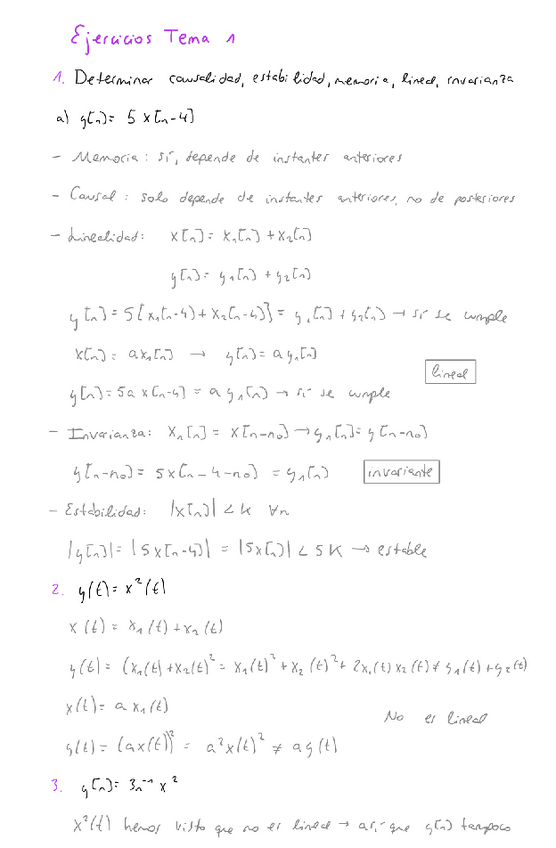 Ejercicios Tema 1
1. Determinar causalidad, estabilidad, memoria, lineal, invarianza
a) y[n] = 5 x[n-4]
- Memoria: sí, depende de instantes anteriores
- Causal: solo depende de instantes anteriores, no de posteriores
- Linealidad: x[n] = x₁[n] + x₂[n]
y[n] = y₁[n] + y₂[n]
y[n] = 5[x₁[n-4] + x₂[n-4]] = y₁[n] + y₂[n] → sí se cumple
x[n] = a x₁[n] → y[n] = a y₁[n]
lineal
y[n] = 5a x[n-4] = a y₁[n] → sí se cumple
- Invarianza: x₁[n] = x[n-n₀] → y₁[n] = y[n-n₀]
y[n-n₀] = 5x[n-4-n₀] = y₁[n] invariante
- Estabilidad: |x[n]| < k ∀n
|y[n]| = |5x[n-4]| = |5x[n]| < 5K → estable
2. y(t) = x²(t)
x(t) = x₁(t) + x₂(t)
y(t) = (x₁(t) + x₂(t))² = x₁(t)² + x₂(t)² + 2x₁(t) x₂(t) ≠ y₁(t) + y₂(t)
x(t) = a x₁(t)
No es lineal
y(t) = (ax(t))² = a²x(t)² ≠ a y(t)
3. y[n] = 3n⁻¹ x²
x²(t) hemos visto que no es lineal → así que y[n] tampoco